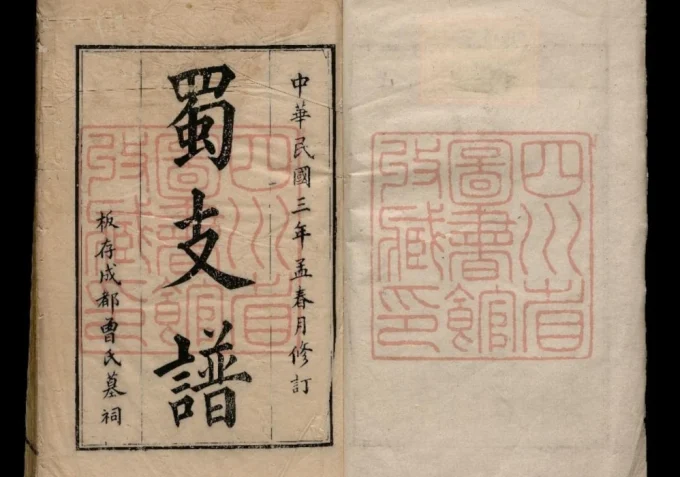 中華民國三年孟春月修訂
蜀支譜
板存成都曾氏墓祠
四川省
圖書館
收藏印
四川省
圖書館
收藏印